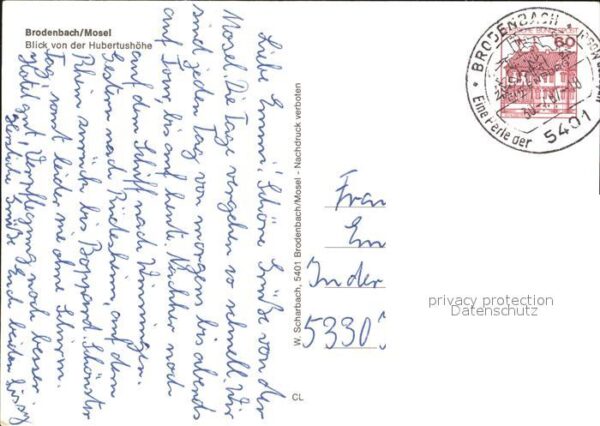 Brodenbach/Mosel
Blick von der Hubertushöhe
Liebe Emmi! Schöne Grüße von der
Mosel. Die Tage vergehen so schnell. Wir
sind jeden Tag von morgens bis abends
auf Tour, bis auf heute. Nachher noch
auf dem Schiff nach Winningen.
Gestern nach Rüdesheim, auf dem
Rhein zurück bis Boppard. Schönster
Tag, sonst leider nie ohne Schirm.
Hotel gut, Verpflegung noch besser.
Herzliche Grüße Euch beiden
W. Scharbach, 5401 Brodenbach/Mosel - Nachdruck verboten
CL
BRODENBACH
Eine Perle der
5401
60
Frau
Em
In der
5330
privacy protection
Datenschutz